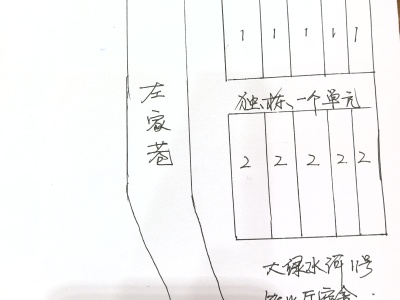 1 1 1 1 1
左家巷
独栋、一个单元
2 2 2 2 2
大绿水河11号
宿舍